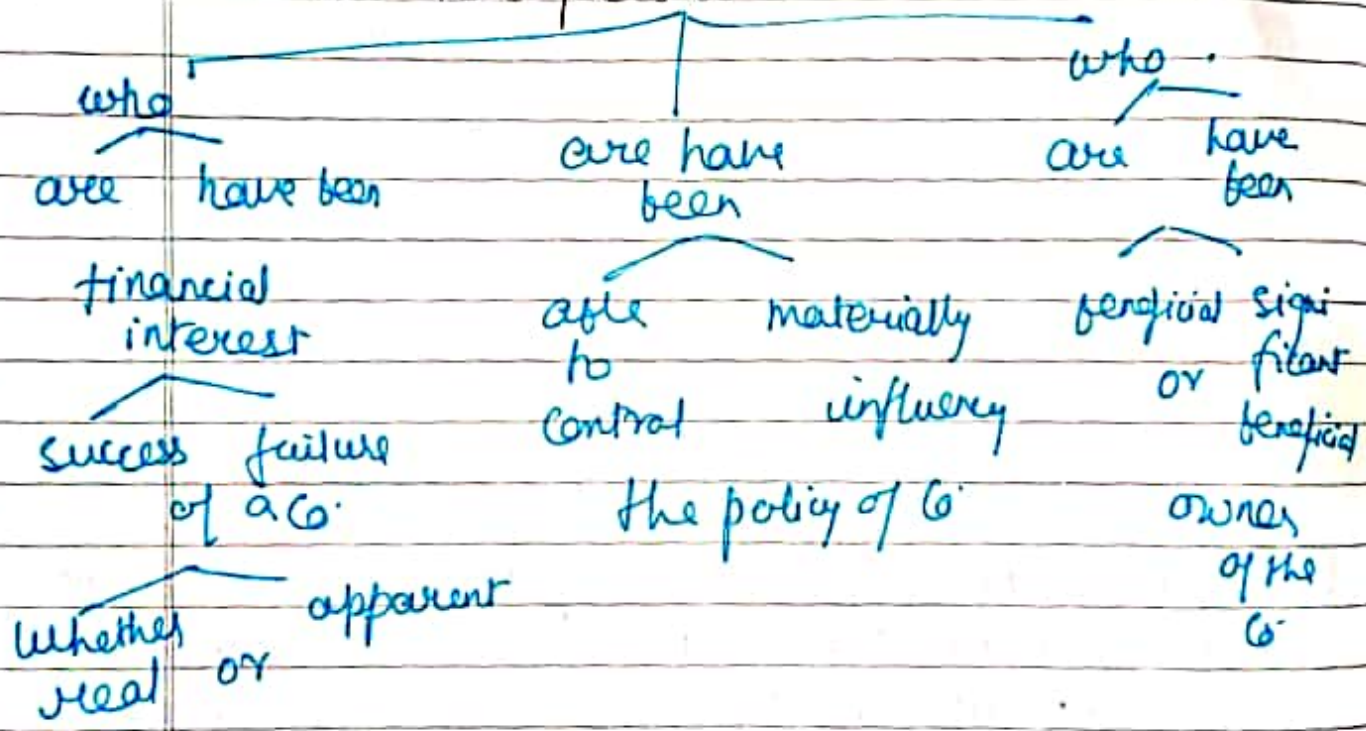 who
are have been
financial
interest
success failure
of a Co.
Whether
real or apparent
are have
been
able
to
control
materially
influency
the policy of Co.
who
are have
been
beneficial
or
signi
ficant
beneficial
owner
of the
Co.